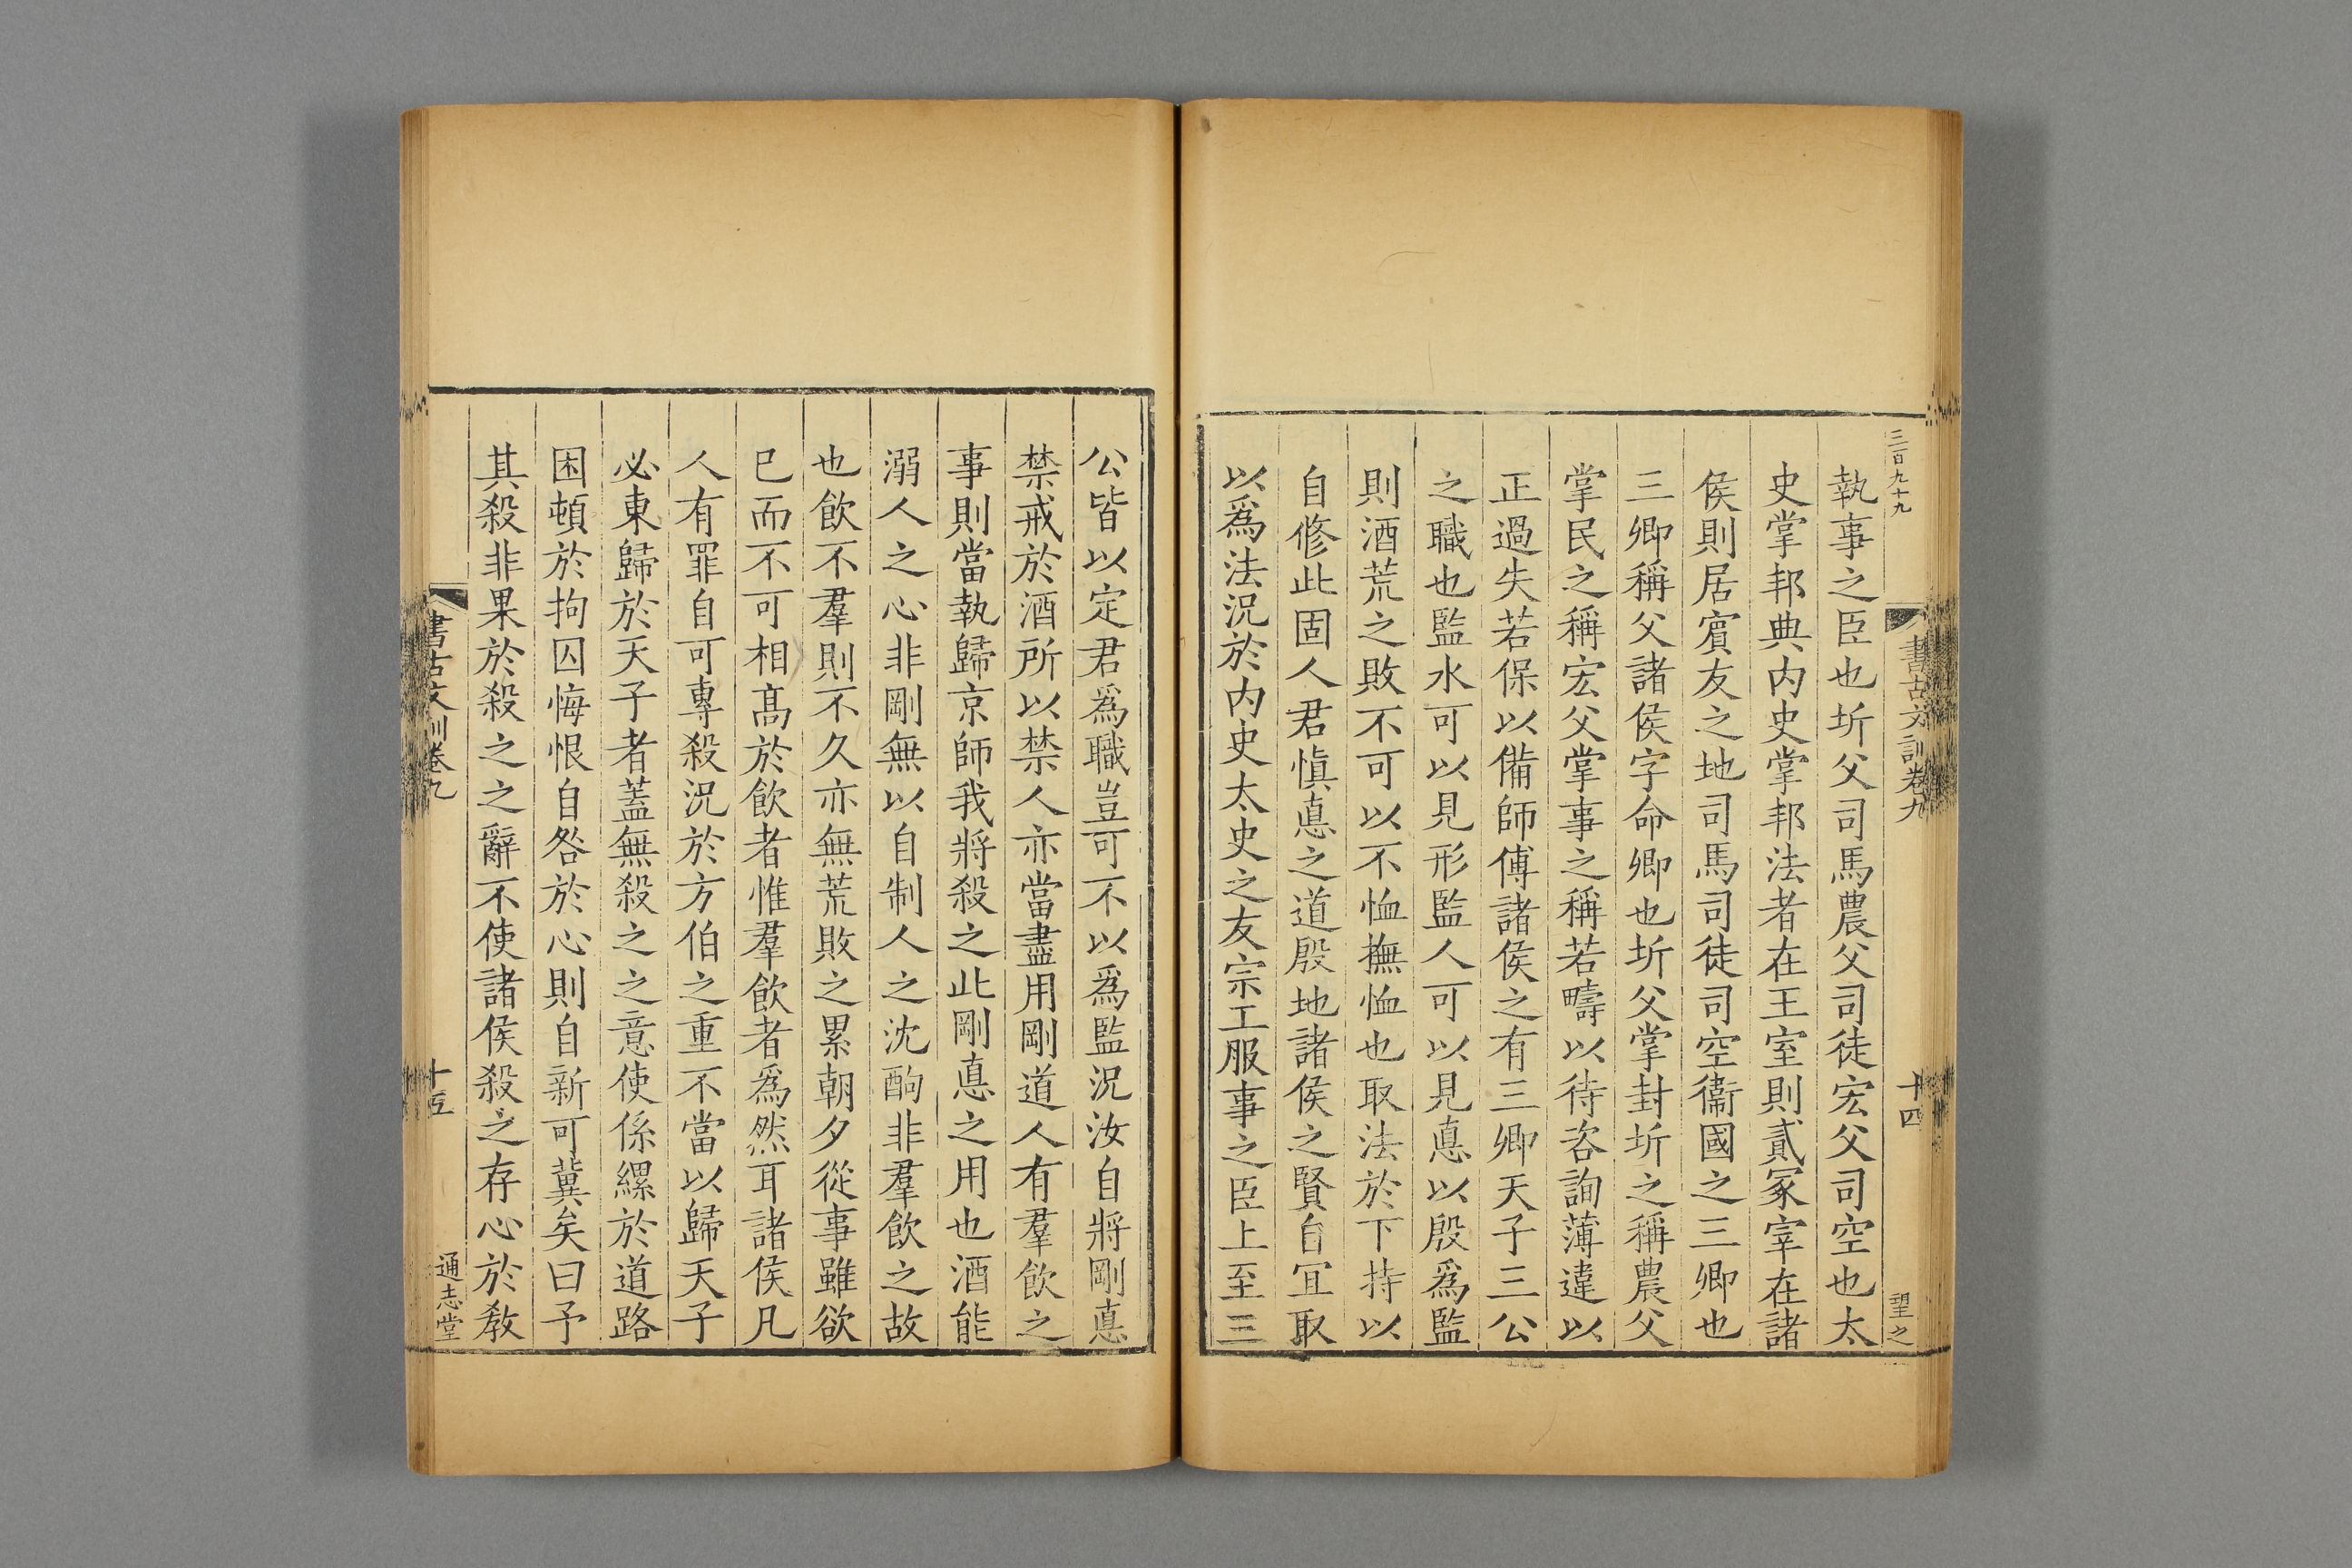 三百九十九
書古文訓卷九
十四
望之
執事之臣也圻父司馬農父司徒宏父司空也太
史掌邦典内史掌邦法者在王室則貳冢宰在諸
侯則居賓友之地司馬司徒司空衞國之三卿也
三卿稱父諸侯字命卿也圻父掌封圻之稱農父
掌民之稱宏父掌事之稱若疇以待咨詢薄違以
正過失若保以備師傅諸侯之有三卿天子三公
之職也監水可以見形監人可以見悳以殷爲監
則酒荒之敗不可以不恤撫恤也取法於下持以
自修此固人君愼悳之道殷地諸侯之賢自冝取
以爲法況於内史太史之友宗工服事之臣上至三
公皆以定君爲職豈可不以爲監況汝自將剛悳
禁戒於酒所以禁人亦當盡用剛道人有羣飲之
事則當執歸京師我將殺之此剛悳之用也酒能
溺人之心非剛無以自制人之沈酗非羣飲之故
也飲不羣則不久亦無荒敗之累朝夕從事雖欲
已而不可相髙於飲者惟羣飲者爲然耳諸侯凡
人有罪自可專殺況於方伯之重不當以歸天子
必東歸於天子者葢無殺之之意使係縲於道路
困頓於拘囚悔恨自咎於心則自新可冀矣曰予
其殺非果於殺之之辭不使諸侯殺之存心於敎
書古文訓卷九
十五
通志堂